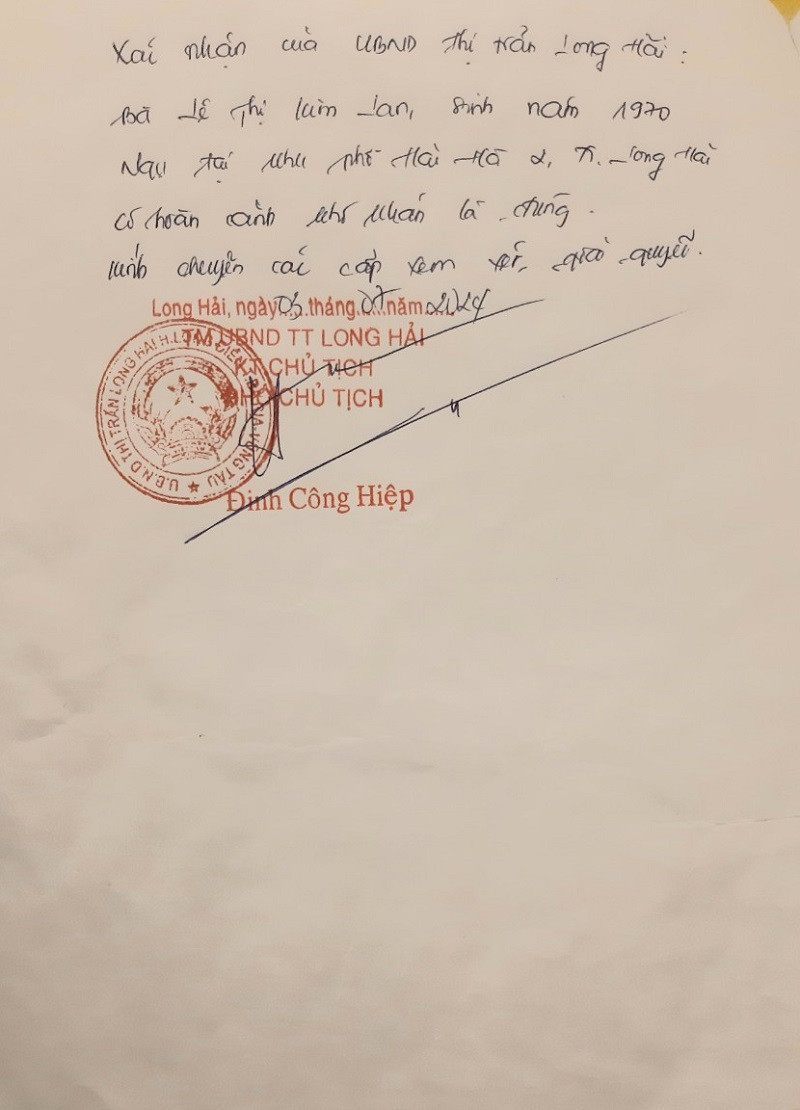 Xác nhận của UBND thị trấn Long Hải:
Bà Lê Thị Kim Lan, sinh năm 1970
Ngụ tại khu phố Hải Hà 2, TT. Long Hải
có hoàn cảnh khó khăn là đúng.
Kính chuyển các cấp xem xét, giải quyết.
Long Hải, ngày 03 tháng 07 năm 2024
TM UBND TT LONG HẢI
KT CHỦ TỊCH
PHÓ CHỦ TỊCH
U.B.N.D THỊ TRẤN LONG HẢI H.LONG ĐIỀN T. BÀ RỊA-VŨNG TÀU
Đinh Công Hiệp